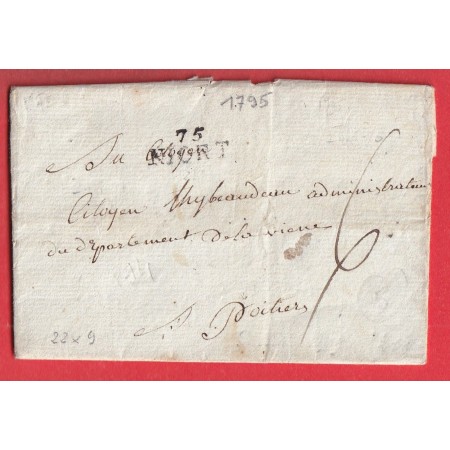 1795
75
NIORT
Au Citoyen
Citoyen thybeaudeau administrateur
du département de la viene
A Poitiers
6
22 x 9